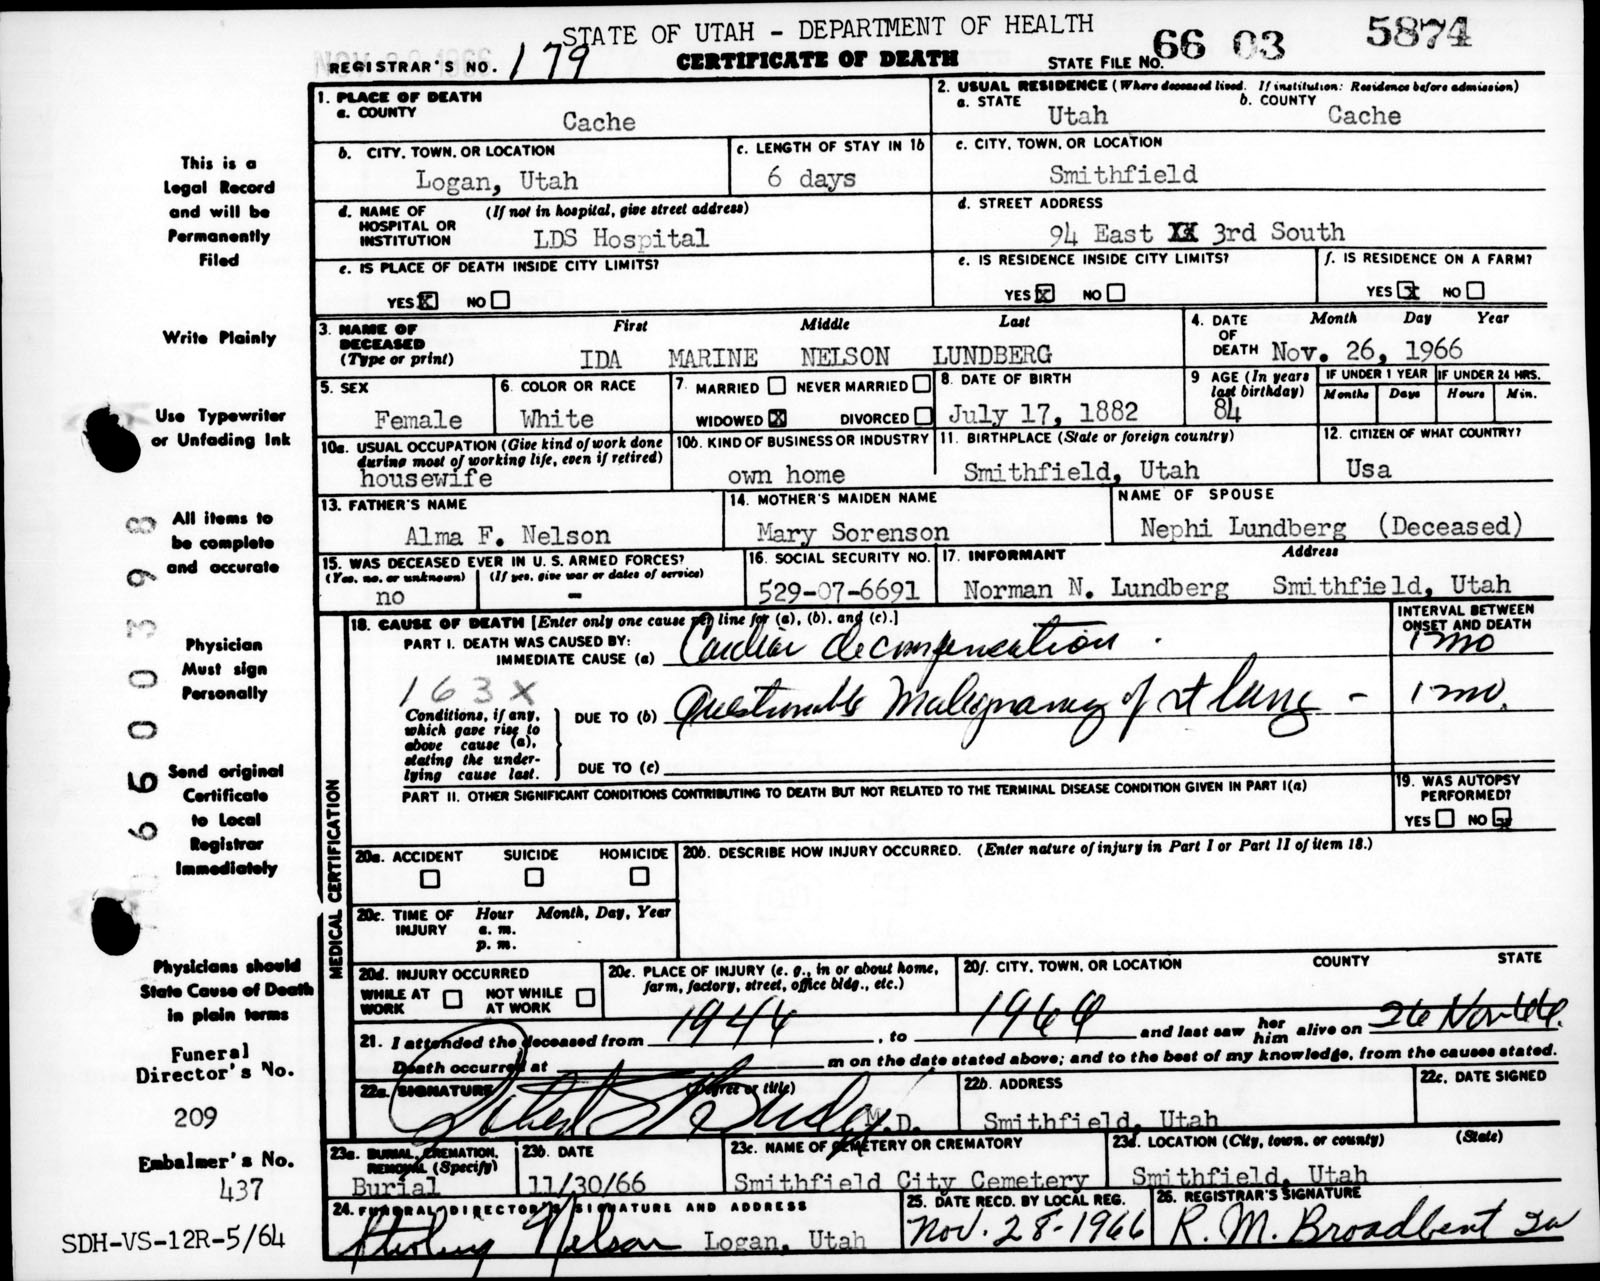 STATE OF UTAH - DEPARTMENT OF HEALTH
CERTIFICATE OF DEATH
REGISTRAR'S NO. 179
STATE FILE NO. 66 03 5874
1. PLACE OF DEATH
a. COUNTY
Cache
2. USUAL RESIDENCE (Where deceased lived. If institution: Residence before admission)
a. STATE
Utah
b. COUNTY
Cache
b. CITY, TOWN, OR LOCATION
Logan, Utah
c. LENGTH OF STAY IN 1b
6 days
c. CITY, TOWN, OR LOCATION
Smithfield
d. NAME OF HOSPITAL OR INSTITUTION (If not in hospital, give street address)
LDS Hospital
d. STREET ADDRESS
94 East XX 3rd South
e. IS PLACE OF DEATH INSIDE CITY LIMITS?
YES X NO
e. IS RESIDENCE INSIDE CITY LIMITS?
YES X NO
f. IS RESIDENCE ON A FARM?
YES X NO
3. NAME OF DECEASED (Type or print)
First Middle Last
IDA MARINE NELSON LUNDBERG
4. DATE OF DEATH Month Day Year
Nov. 26, 1966
5. SEX
Female
6. COLOR OR RACE
White
7. MARRIED NEVER MARRIED
WIDOWED X DIVORCED
8. DATE OF BIRTH
July 17, 1882
9 AGE (In years last birthday)
84
IF UNDER 1 YEAR
Months Days
IF UNDER 24 HRS.
Hours Min.
10a. USUAL OCCUPATION (Give kind of work done during most of working life, even if retired)
housewife
10b. KIND OF BUSINESS OR INDUSTRY
own home
11. BIRTHPLACE (State or foreign country)
Smithfield, Utah
12. CITIZEN OF WHAT COUNTRY?
Usa
13. FATHER'S NAME
Alma F. Nelson
14. MOTHER'S MAIDEN NAME
Mary Sorenson
NAME OF SPOUSE
Nephi Lundberg (Deceased)
15. WAS DECEASED EVER IN U. S. ARMED FORCES?
(Yes, no, or unknown) (If yes, give war or dates of service)
no -
16. SOCIAL SECURITY NO.
529-07-6691
17. INFORMANT Address
Norman N. Lundberg Smithfield, Utah
MEDICAL CERTIFICATION
18. CAUSE OF DEATH [Enter only one cause per line for (a), (b), and (c).]
INTERVAL BETWEEN ONSET AND DEATH
PART I. DEATH WAS CAUSED BY:
IMMEDIATE CAUSE (a) Cardiac decompensation. 1 mo
163X
Conditions, if any, which gave rise to above cause (a), stating the underlying cause last.
DUE TO (b) Questionable Malignancy of rt lung - 1 mo.
DUE TO (c)
PART II. OTHER SIGNIFICANT CONDITIONS CONTRIBUTING TO DEATH BUT NOT RELATED TO THE TERMINAL DISEASE CONDITION GIVEN IN PART I(a)
19. WAS AUTOPSY PERFORMED?
YES NO X
20a. ACCIDENT SUICIDE HOMICIDE
20b. DESCRIBE HOW INJURY OCCURRED. (Enter nature of injury in Part I or Part II of item 18.)
20c. TIME OF INJURY Hour Month, Day, Year
a. m.
p. m.
20d. INJURY OCCURRED
WHILE AT WORK NOT WHILE AT WORK
20e. PLACE OF INJURY (e. g., in or about home, farm, factory, street, office bldg., etc.)
20f. CITY, TOWN, OR LOCATION COUNTY STATE
21. I attended the deceased from 1944, to 1966 and last saw her him alive on 26 Nov 66.
Death occurred at m on the date stated above; and to the best of my knowledge, from the causes stated.
22a. SIGNATURE (Degree or title)
M.D.
22b. ADDRESS
Smithfield, Utah
22c. DATE SIGNED
23a. BURIAL, CREMATION, REMOVAL (Specify)
Burial
23b. DATE
11/30/66
23c. NAME OF CEMETERY OR CREMATORY
Smithfield City Cemetery
23d. LOCATION (City, town, or county) (State)
Smithfield, Utah
24. FUNERAL DIRECTOR'S SIGNATURE AND ADDRESS
Nelson Logan, Utah
25. DATE RECD. BY LOCAL REG.
Nov. 28-1966
26. REGISTRAR'S SIGNATURE
R. M. Broadbent
This is a
Legal Record
and will be
Permanently
Filed
Write Plainly
Use Typewriter
or Unfading Ink
All items to
be complete
and accurate
Physician
Must sign
Personally
Send original
Certificate
to Local
Registrar
Immediately
Physicians should
State Cause of Death
in plain terms
Funeral
Director's No.
209
Embalmer's No.
437
SDH-VS-12R-5/64
6500398